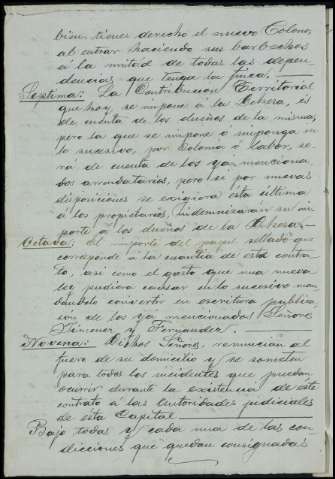 bien tiene derecho el nuevo Colono,
al entrar haciendo sus barbechos
á la mitad de todas las depen-
dencias que tenga la finca.
Septima: La Contribucion Territorial
que hoy se impone á la Dehesa, és
de cuenta de los dueños de la misma,
pero la que se impone ó imponga en
lo sucesivo, por Colonia ó labor, se-
rá de cuenta de los ya menciona-
dos arrendatarios, pero si por nuevas
disposiciones se exigiera esta última
á los propietarios, indemnizarán su im-
porte á los dueños de la Dehesa.
Octava: El importe del papel sellado que
corresponde á la cuantia de este contra-
to, así como el gasto que una nueva
ley pudiera causar en lo sucesivo man-
dandolo convertir en escritura publica
són de los ya mencionados Señores
Jimenez y Fernandez.
Novena: Dichos Señores, renuncian al
fuero de su domicilio y se someten
para todos los incidentes que puedan
ocurrir durante la existencia de este
contrato á las Autoridades judiciales
de esta Capital
Bajo todas y cada una de las con-
dicciones que quedan consignadas